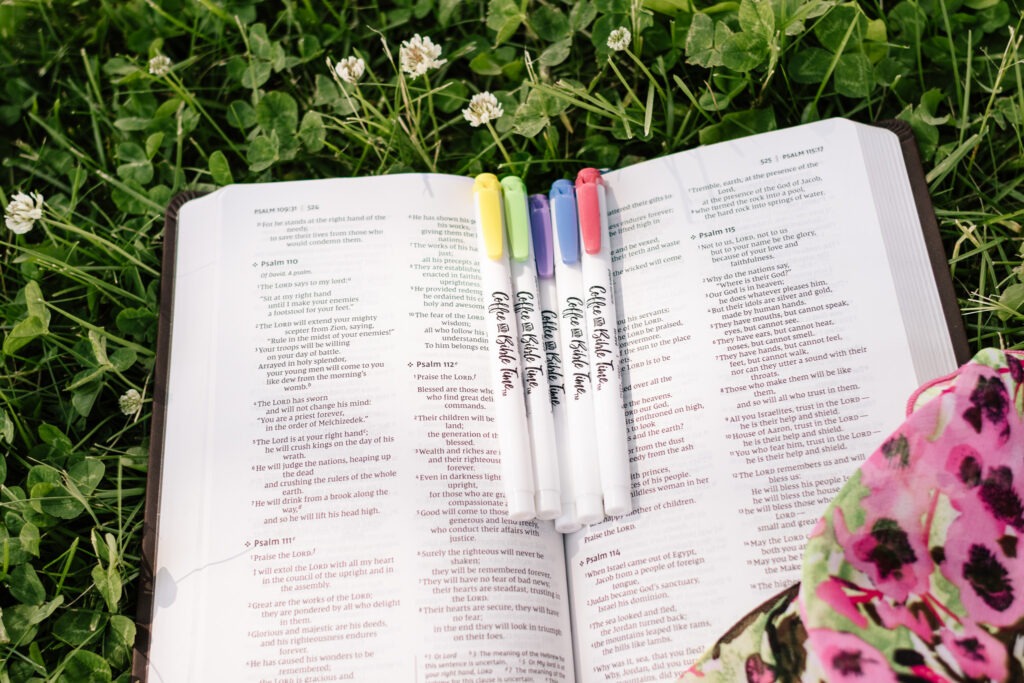 PSALM 109:31 | 524
31 For he stands at the right hand of the
needy,
to save their lives from those who
would condemn them.
Psalm 110
Of David. A psalm.
1 The LORD says to my lord:
"Sit at my right hand
until I make your enemies
a footstool for your feet."
2 The LORD will extend your mighty
scepter from Zion, saying,
"Rule in the midst of your enemies!"
3 Your troops will be willing
on your day of battle.
Arrayed in holy splendor,
your young men will come to you
like dew from the morning's
womb.
4 The LORD has sworn
and will not change his mind:
"You are a priest forever,
in the order of Melchizedek."
5 The Lord is at your right hand;
he will crush kings on the day of his
wrath.
6 He will judge the nations, heaping up
the dead
and crushing the rulers of the whole
earth.
7 He will drink from a brook along the
way,
and so he will lift his head high.
Psalm 111
1 Praise the LORD.
I will extol the LORD with all my heart
in the council of the upright and in
the assembly.
2 Great are the works of the LORD;
they are pondered by all who delight
in them.
3 Glorious and majestic are his deeds,
and his righteousness endures
forever.
4 He has caused his wonders to be
remembered;
the LORD is gracious and
6 He has shown his
his works,
giving them the
nations.
7 The works of his
just;
all his precepts
8 They are established
enacted in faithful
uprightness.
9 He provided redemp
he ordained his
holy and awesome
10 The fear of the LORD
wisdom;
all who follow his
understanding
To him belongs
Psalm 112
1 Praise the LORD.
Blessed are those
who find great
commands.
2 Their children will be
land;
the generation of
blessed.
3 Wealth and riches are
and their righteous
forever.
4 Even in darkness light
upright,
for those who are
compassionate
5 Good will come to those
generous and lend freely,
who conduct their affairs with
justice.
6 Surely the righteous will never be
shaken;
they will be remembered forever.
7 They will have no fear of bad news;
their hearts are steadfast, trusting in
the LORD.
8 Their hearts are secure, they will have
no fear;
in the end they will look in triumph
on their foes.
Coffee AND Bible Time
Coffee AND Bible Time
Coffee AND Bible Time
Coffee AND Bible Time
Coffee AND Bible Time
525 | PSALM 115:17
scattered their gifts to
endures forever;
be lifted high in
and be vexed,
their teeth and waste
the wicked will come
you his servants;
the LORD.
the LORD be praised,
of the sun to the place
LORD is to be
over all the
the heavens.
our God,
enthroned on high,
to look
and the earth?
from the dust
from the ash
with princes,
of his people.
childless woman in her
as a happy mother of children.
Praise the LORD.
Psalm 114
1 When Israel came out of Egypt,
Jacob from a people of foreign
tongue,
2 Judah became God's sanctuary,
Israel his dominion.
3 The sea looked and fled,
the Jordan turned back;
4 the mountains leaped like rams,
the hills like lambs.
5 Why was it, sea, that you fled?
Why, Jordan, did you turn
7 Tremble, earth, at the presence of the
Lord,
at the presence of the God of Jacob,
8 who turned the rock into a pool,
the hard rock into springs of water.
Psalm 115
1 Not to us, LORD, not to us
but to your name be the glory,
because of your love and
faithfulness.
2 Why do the nations say,
"Where is their God?"
3 Our God is in heaven;
he does whatever pleases him.
4 But their idols are silver and gold,
made by human hands.
5 They have mouths, but cannot speak,
eyes, but cannot see.
6 They have ears, but cannot hear,
noses, but cannot smell.
7 They have hands, but cannot feel,
feet, but cannot walk,
nor can they utter a sound with their
throats.
8 Those who make them will be like
them,
and so will all who trust in them.
9 All you Israelites, trust in the LORD—
he is their help and shield.
10 House of Aaron, trust in the LORD—
he is their help and shield.
11 You who fear him, trust in the LORD—
he is their help and shield.
12 The LORD remembers us and will
bless us:
He will bless his people
he will bless the house
13 he will bless those
LORD—
small and great
14 May the LORD
both you
15 May you be
the LORD
May
16 The highest